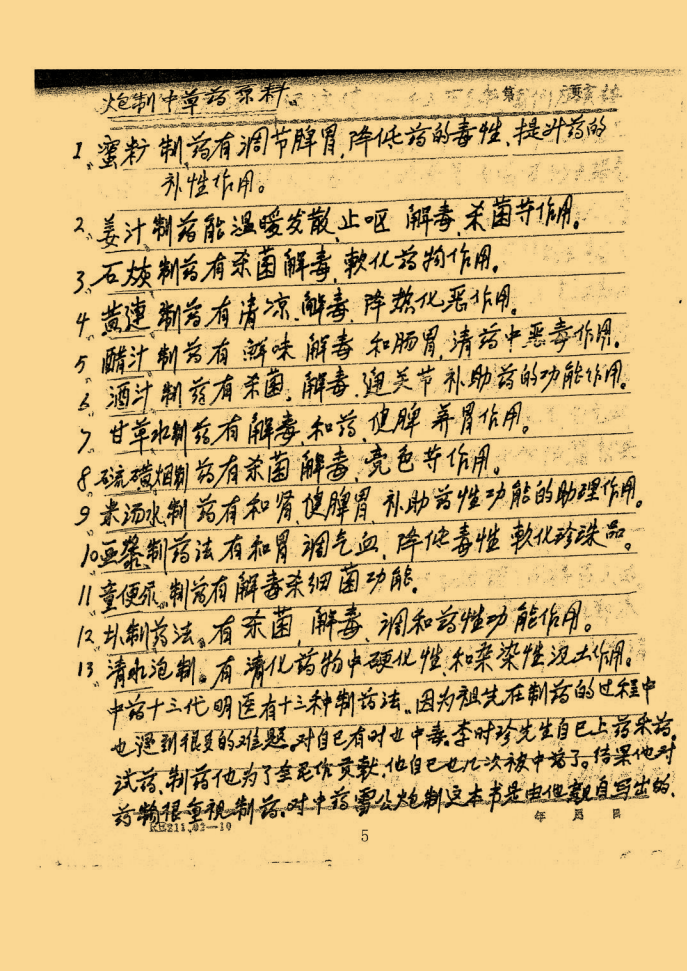 炮制中草药原料。 第 页
1、蜜粉制药有调节脾胃、降低药的毒性、提升药的
补性作用。
2、姜汁制药能温暖发散、止呕 解毒、杀菌等作用。
3、石灰制药有杀菌解毒、軟化药物作用。
4、黄連制药有清凉、解毒、降热化恶作用。
5、醋汁制药有鲜味 解毒 和肠胃、清药中恶毒作用。
6、酒汁制药有杀菌、解毒、通关节 补助药的功能作用。
7、甘草水制药有解毒、和药、健脾 养胃作用。
8、硫磺烟制药有杀菌 解毒、亮色等作用。
9、米汤水制药有和胃、健脾胃、补助药性功能的助理作用。
10、豆浆制药法有和胃 调气血、降低毒性 軟化珍珠品。
11、童便尿、制药有解毒杀细菌功能。
12、制药法。有杀菌、解毒、调和药性功能作用。
13、清水泡制。有清化药物中硬化性、和杂染性泥土作用。
中药十三代明医有十三种制药法、因为祖先在制药的过程中
也遇到很多的难题、对自己有时也中毒、李时珍先生自己上药采药、
试药、制药他为了作贡献、他自己也几次被中毒了。结果他对
药物很重视制药、对中药雷公炮制这本书是由他親自写出的、
KE211.02—10 年 月 日
5